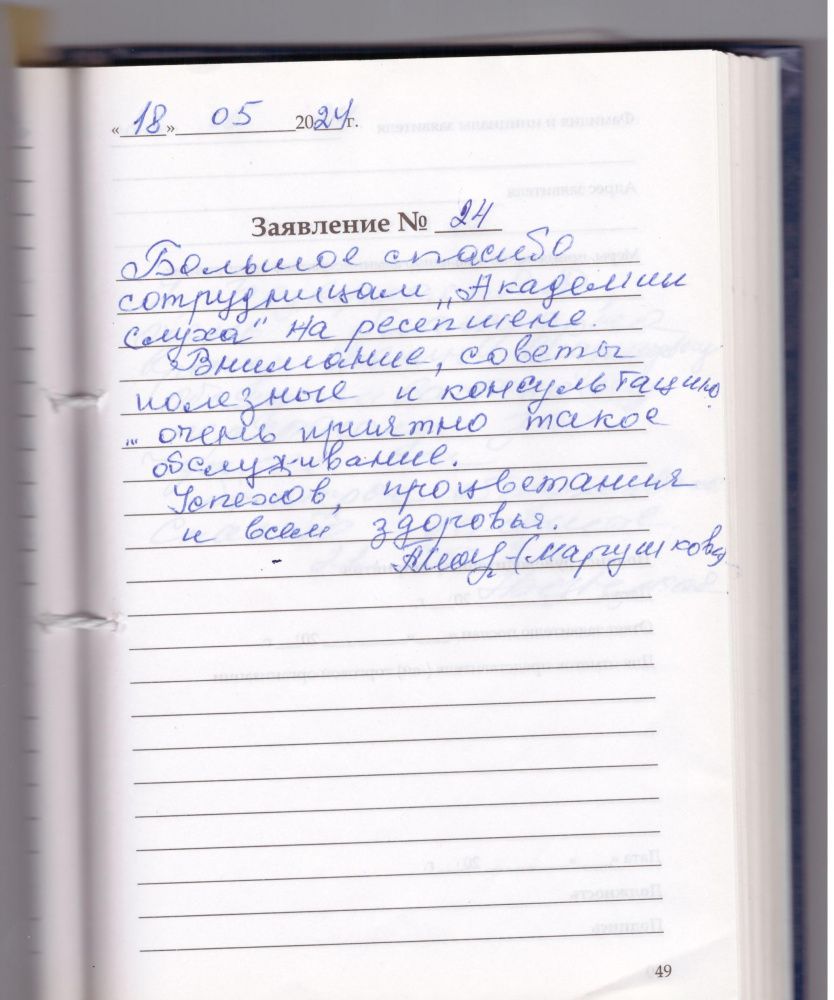 «18» 05 2024г.
Заявление № 24
Большое спасибо
сотрудницам „Академии
слуха" на ресепшене.
Внимание, советы
полезные и консультацию
... очень приятно такое
обслуживание.
Успехов, процветания
и всем здоровья.
(Маргушкова
49